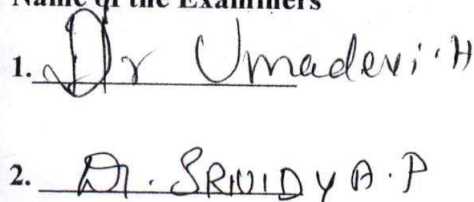 Name of the Examiners
1. Dr Umadevi.H
2. Dr. SRIVIDYA.P